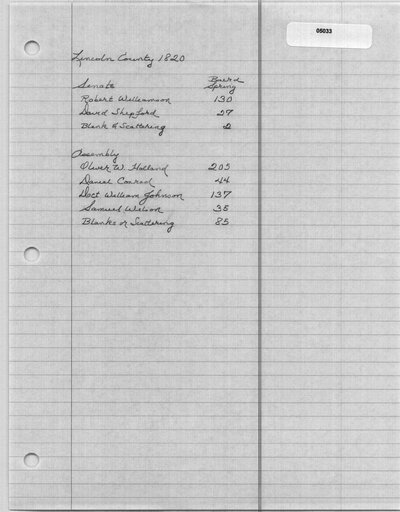 05033
Lincoln County 1820
Baird
Senate Spring
Robert Williamson 130
David Shepford 27
Blank & Scattering 2
Assembly
Oliver W. Holland 205
Daniel Conrad 44
Doct William Johnson 137
Samuel Wilson 35
Blanks or Scattering 85